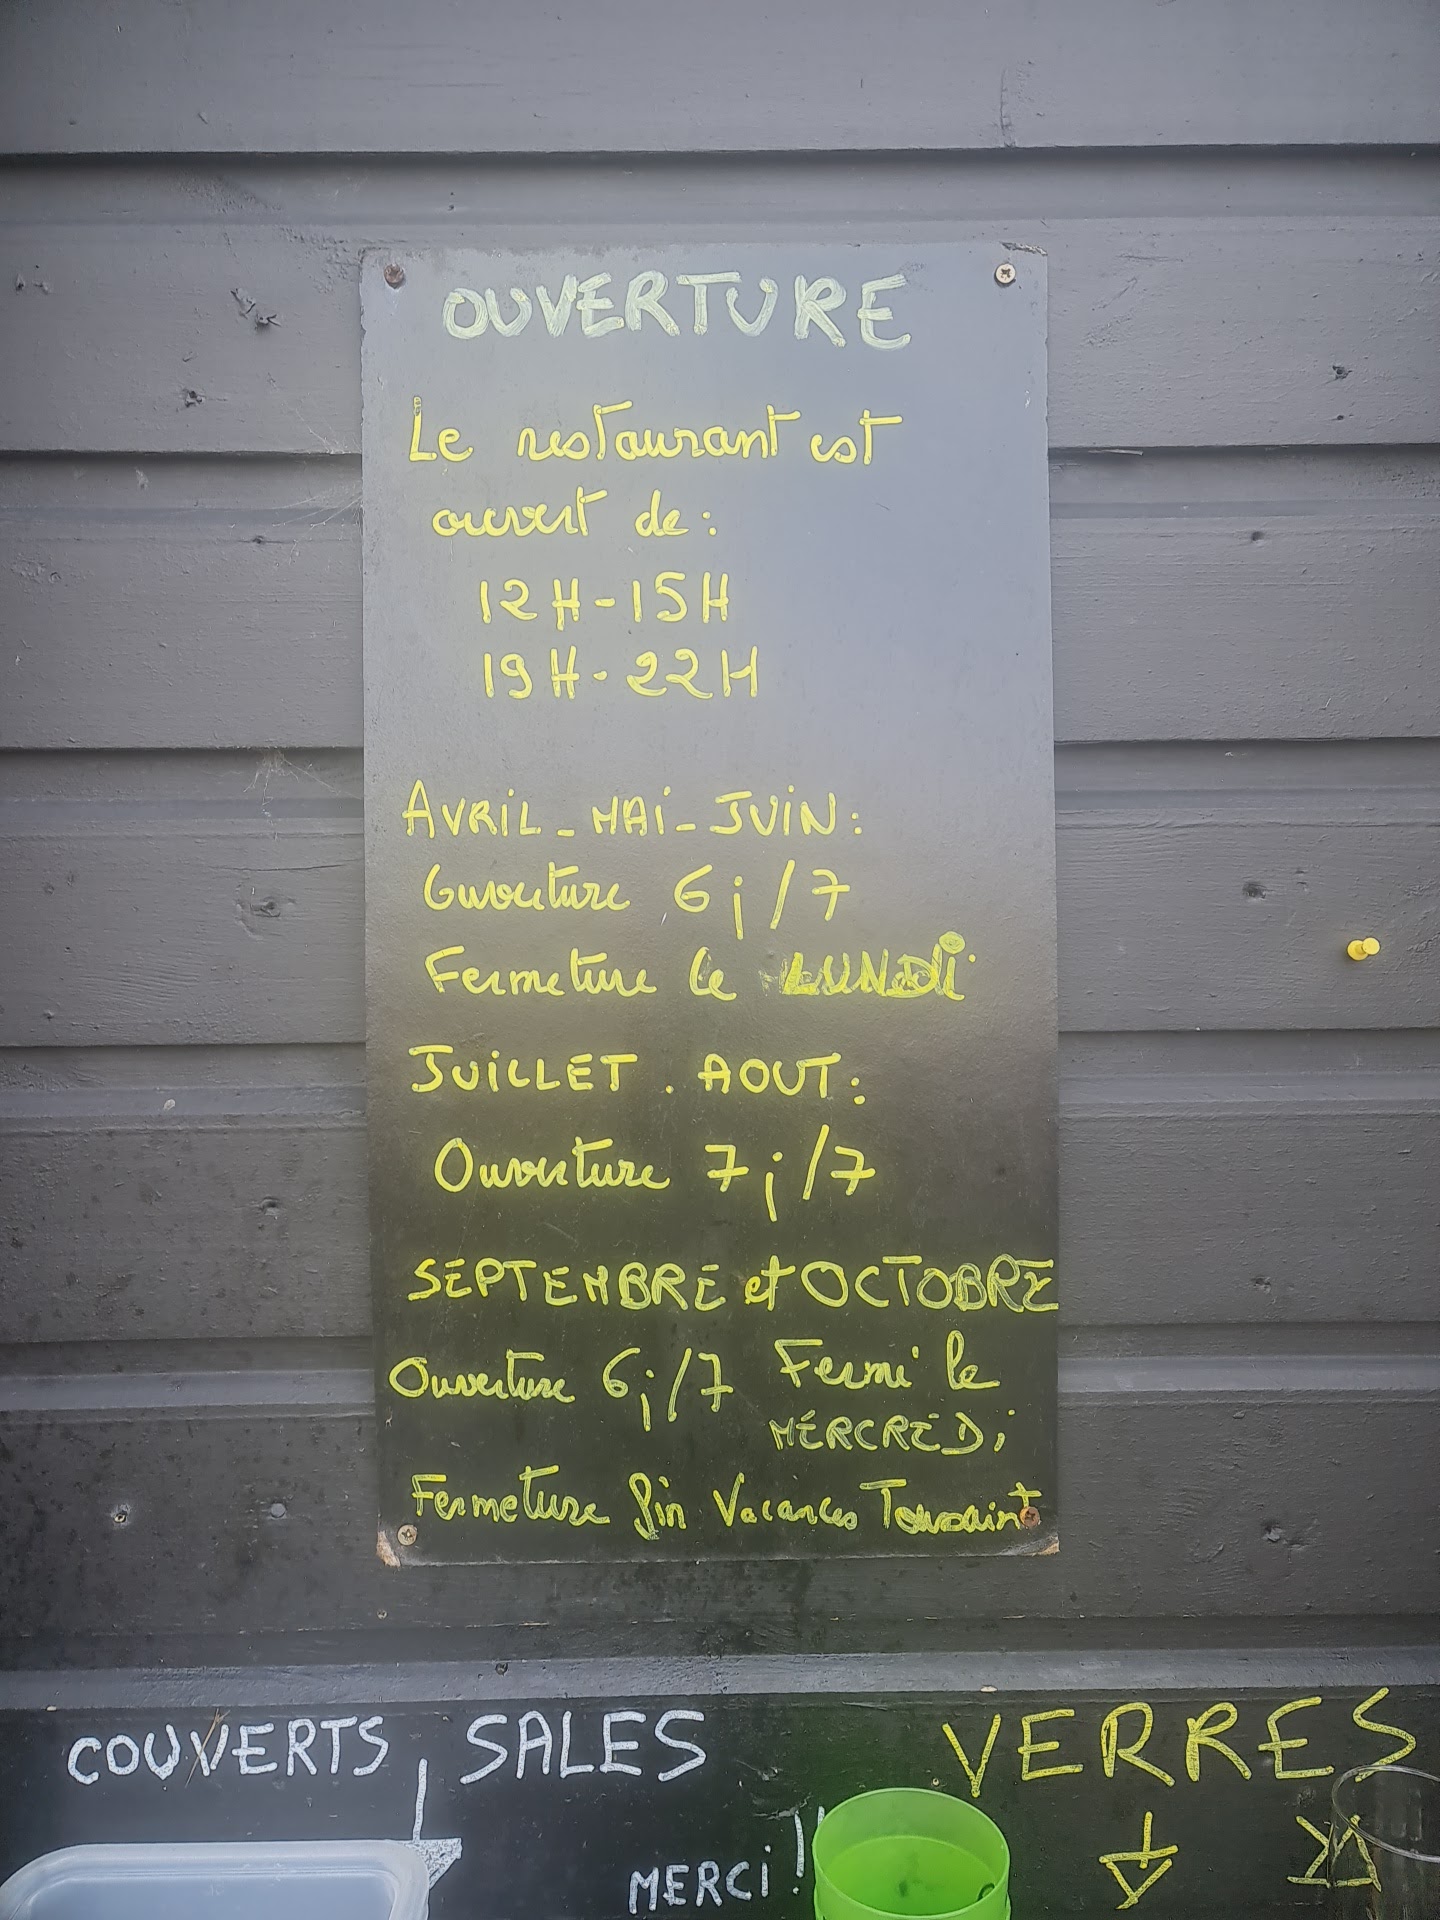 OUVERTURE
Le restaurant est
ouvert de :
12H-15H
19H-22H
AVRiL - MAi - JUiN :
Ouverture 6j/7
Fermeture le LUNDi
JUiLLET . AOUT :
Ouverture 7j/7
SEPTEMBRE et OCTOBRE
Ouverture 6j/7 Fermé le
MERCREDi
Fermeture fin Vacances Toussaint
COUVERTS SALES
MERCi !!
VERRES